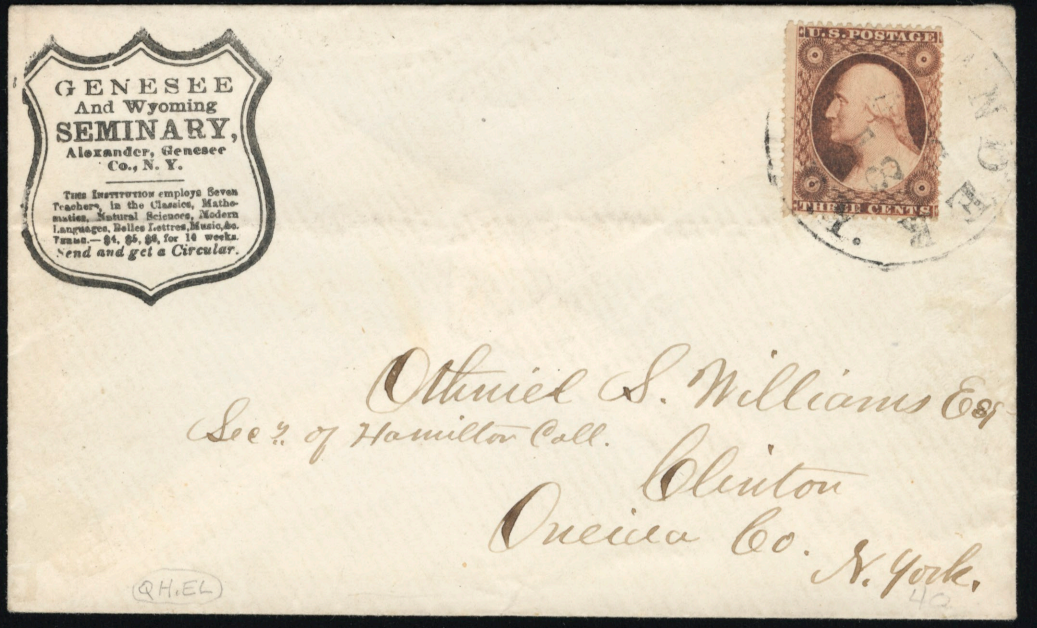 GENESEE
And Wyoming
SEMINARY,
Alexander, Genesee
Co., N. Y.
THIS INSTITUTION employs Seven
Teachers, in the Classics, Mathe-
matics, Natural Sciences, Modern
Languages, Belles Lettres, Music, &c.
TERMS.—$4, $5, $6, for 14 weeks.
Send and get a Circular.
U.S. POSTAGE
THREE CENTS
Othniel S. Williams Esq
Secy. of Hamilton Coll.
Clinton
Oneida Co.
N. York.
QH.EL
40